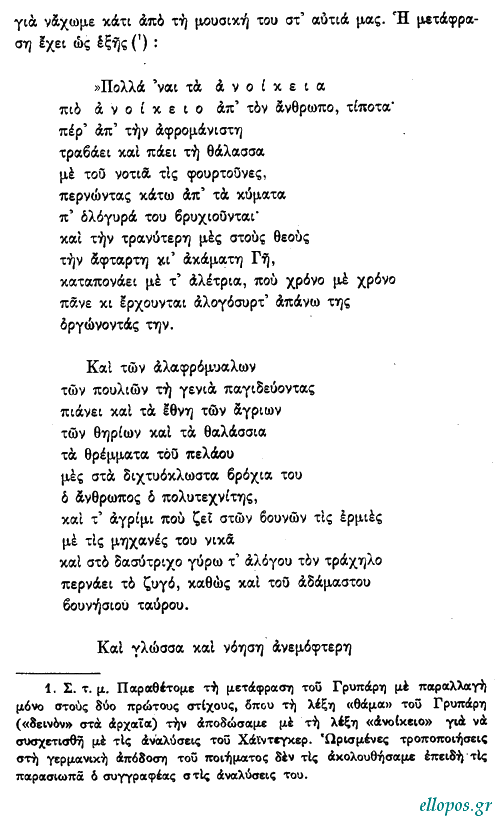 γιὰ νἄχωμε κάτι ἀπὸ τὴ μουσική του στ' αὐτιά μας. Ἡ μετάφρα-
ση ἔχει ὡς ἑξῆς (¹) :
»Πολλά 'ναι τὰ ἀ ν ο ί κ ε ι α
πιὸ ἀ ν ο ί κ ε ι ο ἀπ' τὸν ἄνθρωπο, τίποτα·
πέρ' ἀπ' τὴν ἀφρομάνιστη
τραβάει καὶ πάει τὴ θάλασσα
μὲ τοῦ νοτιᾶ τὶς φουρτοῦνες,
περνώντας κάτω ἀπ' τὰ κύματα
π' ὁλόγυρά του βρυχιοῦνται·
καὶ τὴν τρανύτερη μὲς στοὺς θεοὺς
τὴν ἄφταρτη κι' ἀκάματη Γῆ,
καταπονάει μὲ τ' ἀλέτρια, ποὺ χρόνο μὲ χρόνο
πᾶνε κι ἔρχουνται ἀλογόσυρτ' ἀπάνω της
ὀργώνοντάς την.
Καὶ τῶν ἀλαφρόμυαλων
τῶν πουλιῶν τὴ γενιὰ παγιδεύοντας
πιάνει καὶ τὰ ἔθνη τῶν ἄγριων
τῶν θηρίων καὶ τὰ θαλάσσια
τὰ θρέμματα τοῦ πελάου
μὲς στὰ διχτυόκλωστα βρόχια του
ὁ ἄνθρωπος ὁ πολυτεχνίτης,
καὶ τ' ἀγρίμι ποὺ ζεῖ στῶν βουνῶν τὶς ἐρμιὲς
μὲ τὶς μηχανές του νικᾶ
καὶ στὸ δασύτριχο γύρω τ' ἀλόγου τὸν τράχηλο
περνάει τὸ ζυγό, καθὼς καὶ τοῦ ἀδάμαστου
βουνήσιου ταύρου.
Καὶ γλώσσα καὶ νόηση ἀνεμόφτερη
1. Σ. τ. μ. Παραθέτομε τὴ μετάφραση τοῦ Γρυπάρη μὲ παραλλαγὴ
μόνο στοὺς δύο πρώτους στίχους, ὅπου τὴ λέξη «θάμα» τοῦ Γρυπάρη
(«δεινὸν» στὰ ἀρχαῖα) τὴν ἀποδώσαμε μὲ τὴ λέξη «ἀνοίκειο» γιὰ νὰ
συσχετισθῆ μὲ τὶς ἀναλύσεις τοῦ Χάϊντεγκερ. Ὡρισμένες τροποποιήσεις
στὴ γερμανικὴ ἀπόδοση τοῦ ποιήματος δὲν τὶς ἀκολουθήσαμε ἐπειδὴ τὶς
παρασιωπᾶ ὁ συγγραφέας στὶς ἀναλύσεις του.
ellopos.gr